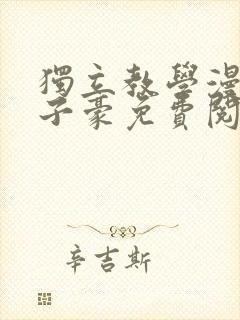 獨立教學漫
子豪免費閱
辛吉斯